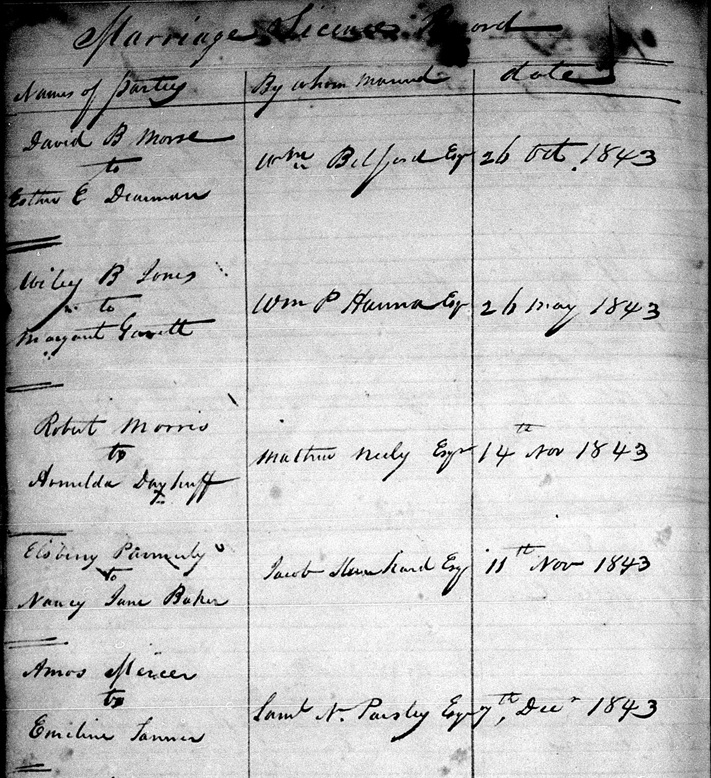 Marriage License Record
Names of parties By whom married date
David B Morse
to
Esther E Dearman
Wm Belford Esqr 26 Oct. 1843
Wiley B Jones
to
Margaret Garrett
Wm P Hanna Esqr 26 May 1843
Robert Morris
to
Armilda Dayhuff
Mathew Neely Esqr 14th Nov 1843
Elsberry
to
Nancy Jane Baker
Jacob Esqr 11th Nov 1843
Amos Mercer
to
Emeline Tanner
Saml N. Parsley Esqr 7th, Decr 1843